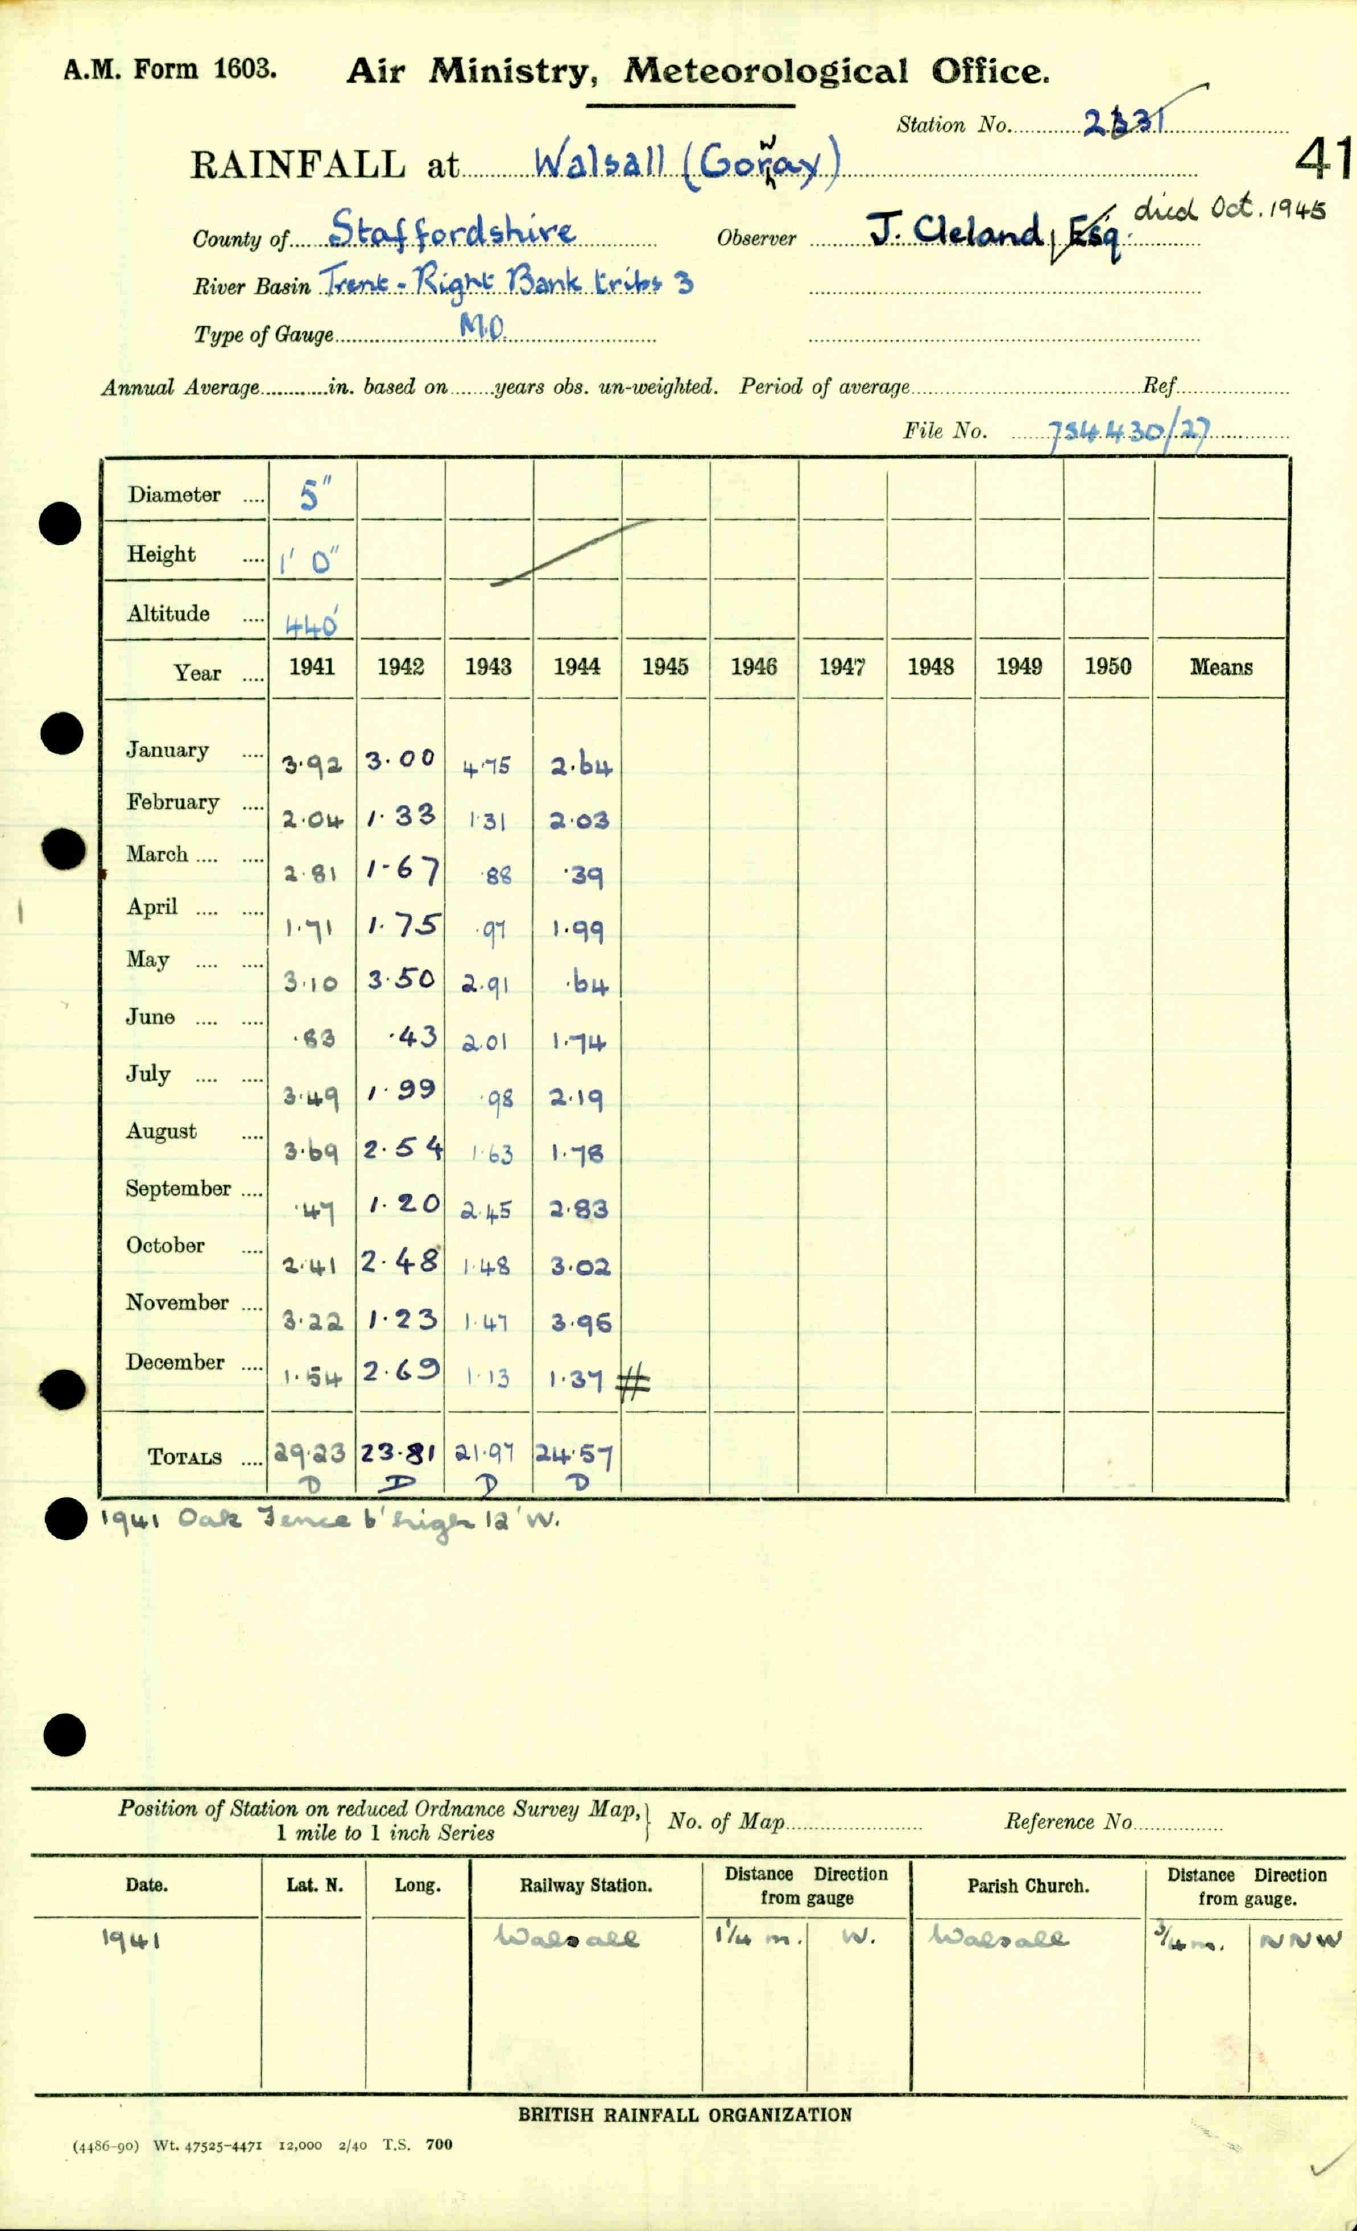 A.M. Form 1603. Air Ministry, Meteorological Office.
Station No. 2331
RAINFALL at Walsall (Gorway) 41
County of Staffordshire Observer J. Cleland, Esq. died Oct. 1945
River Basin Trent - Right Bank tribs 3
Type of Gauge M.O.
Annual Average in. based on years obs. un-weighted. Period of average Ref
File No. 734430/27
Diameter 5"
Height 1' 0"
Altitude 440'
Year 1941 1942 1943 1944 1945 1946 1947 1948 1949 1950 Means
January 3.92 3.00 4.75 2.64
February 2.04 1.33 1.31 2.03
March 2.81 1.67 .88 .39
April 1.71 1.75 .97 1.99
May 3.10 3.50 2.91 .64
June .83 .43 2.01 1.74
July 3.49 1.99 .98 2.19
August 3.69 2.54 1.63 1.78
September .47 1.20 2.45 2.83
October 2.41 2.48 1.48 3.02
November 3.22 1.23 1.47 3.95
December 1.54 2.69 1.13 1.37 #
TOTALS 29.23 23.81 21.97 24.57
D D D D
1941 Oak Fence 6' high 12' W.
Position of Station on reduced Ordnance Survey Map, No. of Map Reference No
1 mile to 1 inch Series
Date. Lat. N. Long. Railway Station. Distance Direction from gauge Parish Church. Distance Direction from gauge.
1941 Walsall 1 1/4 m. W. Walsall 3/4 m. NNW
BRITISH RAINFALL ORGANIZATION
(4486-90) Wt. 47525-4471 12,000 2/40 T.S. 700